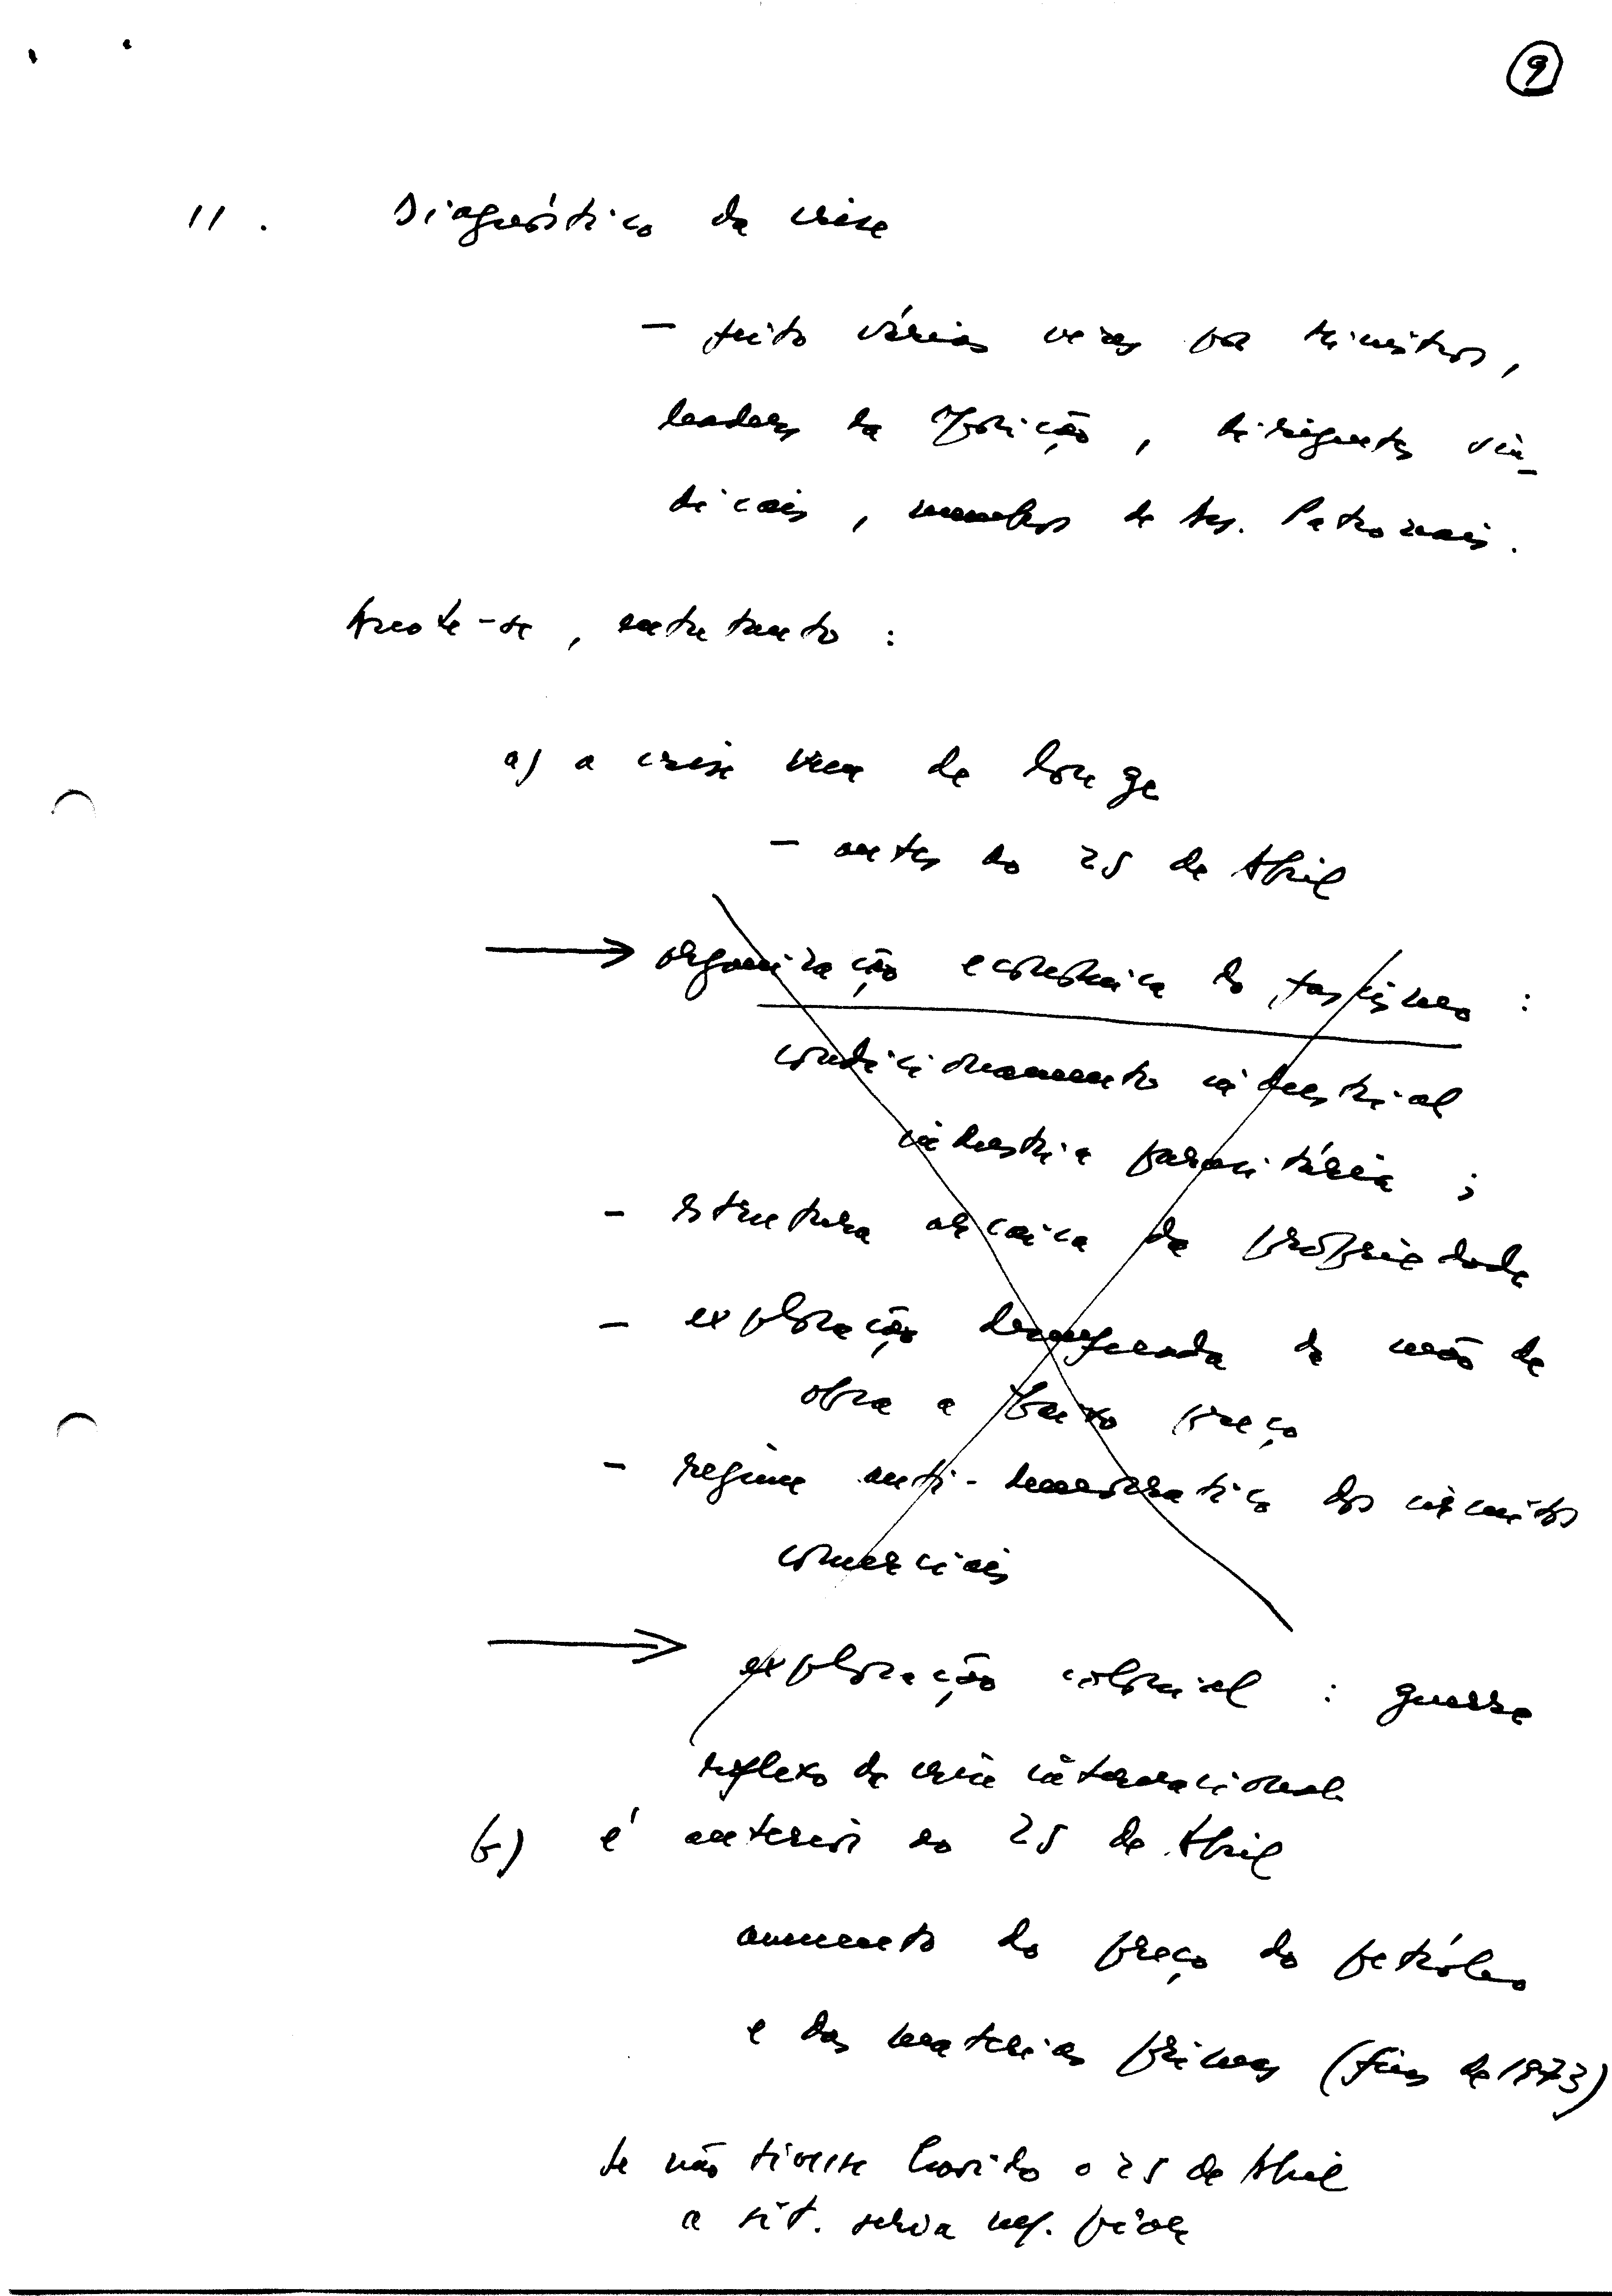 9
11. Diagnóstico da crise
- feito várias vezes por Ministros,
leaders da Oposição, dirigentes sin-
dicais, membros de Ass. Patronais.
Anote-se, entretanto:
a) a crise vem de longe
- antes do 25 de Abril
organização económica do fascismo:
condicionamento industrial
indústria parasitária;
- estrutura arcaica da propriedade
- exploração desenfreada da mão de
obra a baixo preço
- regime anti-democrático dos circuitos
comerciais
exploração colonial: guerra
reflexo da crise internacional
b) é anterior ao 25 de Abril
aumento do preço do petróleo
e das matérias primas (fins de 1973)
se não tivesse havido o 25 de Abril
a sit. seria pior